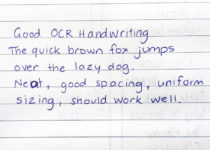 Good OCR Handwriting
The quick brown fox jumps
over the lazy dog.
Neat, good spacing, uniform
sizing, should work well.